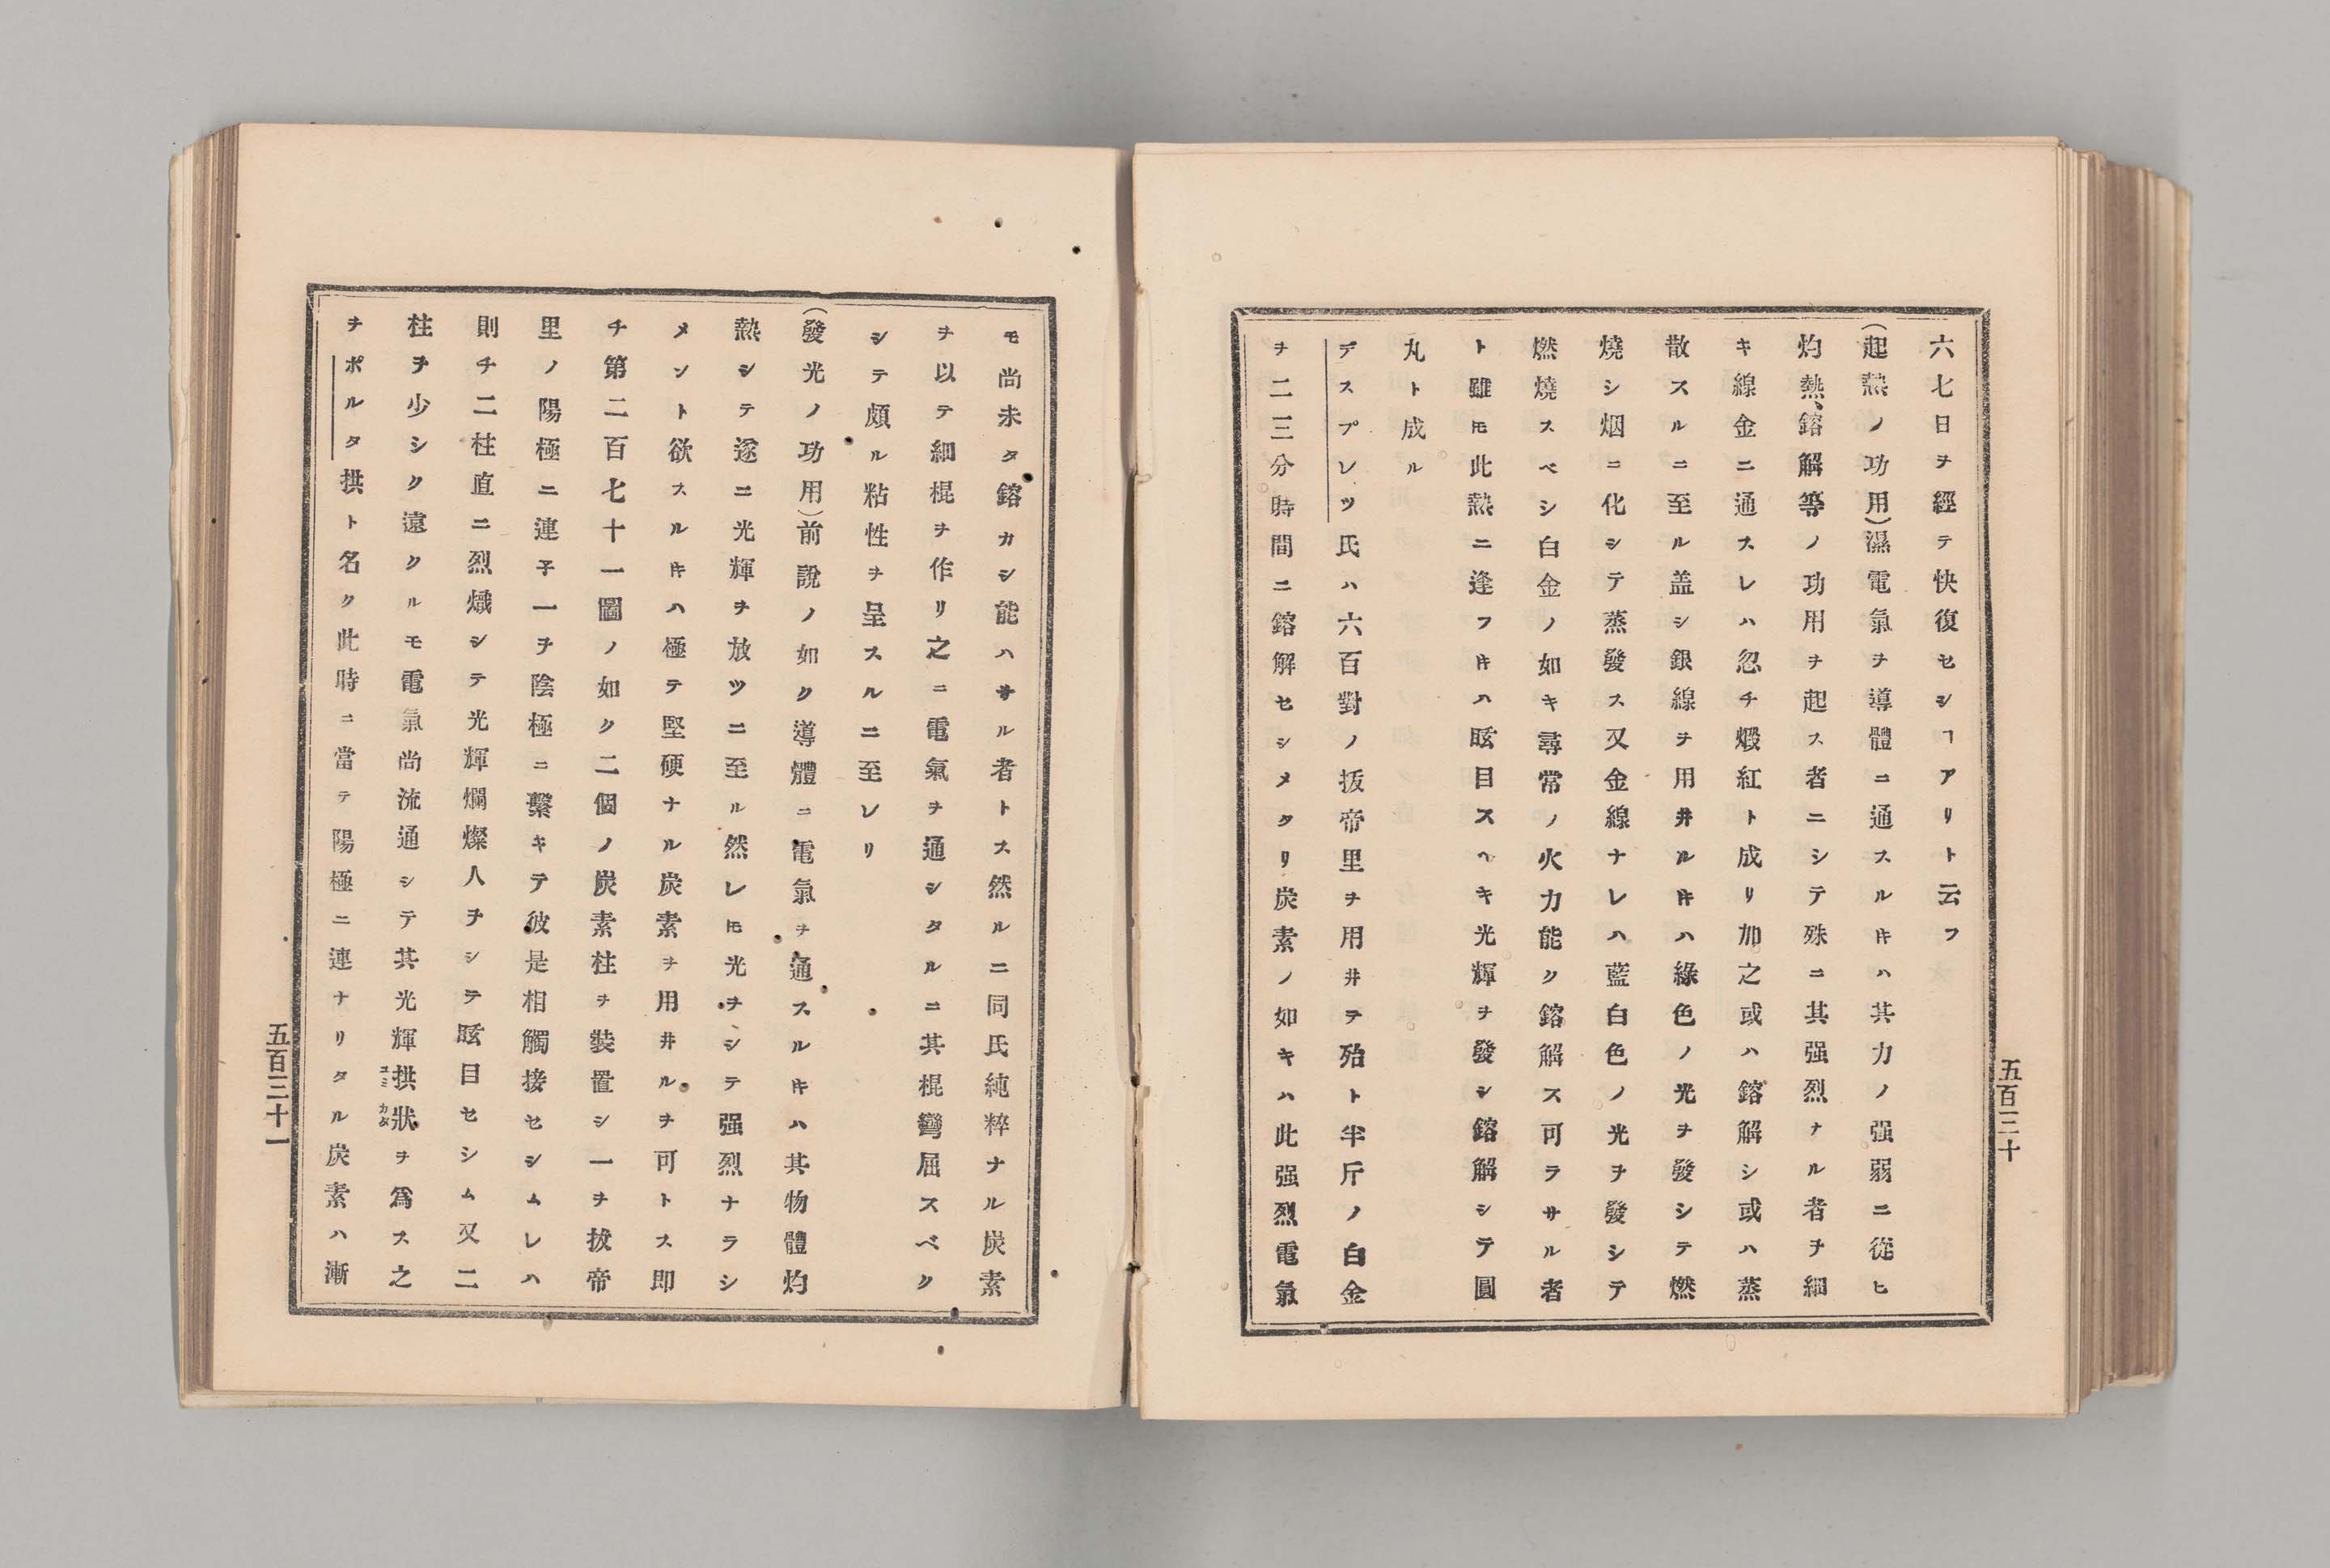 六七日ヲ經テ快復セシヿアリト云フ
(起熱ノ功用)濕電氣ヲ導體ニ通スルキハ其力ノ强弱ニ從ヒ
灼熱、鎔解等ノ功用ヲ起ス者ニシテ殊ニ其强烈ナル者ヲ細
キ線金ニ通スレハ忽チ煅紅ト成リ加之或ハ鎔解シ或ハ蒸
散スルニ至ル盖シ銀線ヲ用井ルキハ綠色ノ光ヲ發シテ燃
燒シ烟ニ化シテ蒸發ス又金線ナレハ藍白色ノ光ヲ發シテ
燃燒スベシ白金ノ如キ尋常ノ火力能ク鎔解ス可ラサル者
ト雖𪜈此熱ニ逢フキハ眩目スヘキ光輝ヲ發シ鎔解シテ圓
丸ト成ル
デスプレツ氏ハ六百對ノ扳帝里ヲ用井テ殆ト半斤ノ白金
ヲ二三分時間ニ鎔解セシメタリ炭素ノ如キハ此强烈電氣
五百三十
モ尚未タ鎔カシ能ハサル者トス然ルニ同氏純粹ナル炭素
ヲ以テ細棍ヲ作リ之ニ電氣ヲ通シタルニ其棍彎屈スベク
シテ頗ル粘性ヲ呈スルニ至レリ
(發光ノ功用)前說ノ如ク導體ニ電氣ヲ通スルキハ其物體灼
熱シテ遂ニ光輝ヲ放ツニ至ル然レ𪜈光ヲシテ强烈ナラシ
メント欲スルキハ極テ堅硬ナル炭素ヲ用井ルヲ可トス即
チ第二百七十一圖ノ如ク二個ノ炭素柱ヲ裝置シ一ヲ拔帝
里ノ陽極ニ連子一ヲ陰極ニ繫キテ彼是相觸接セシムレハ
則チ二柱直ニ烈熾シテ光輝爛燦人ヲシテ眩目セシム又二
柱ヲ少シク遠クルモ電氣尚流通シテ其光輝拱狀ヲ爲ス之
ユミ カタ
ヲポルタ拱ト名ク此時ニ當テ陽極ニ連ナリタル炭素ハ漸
五百三十一